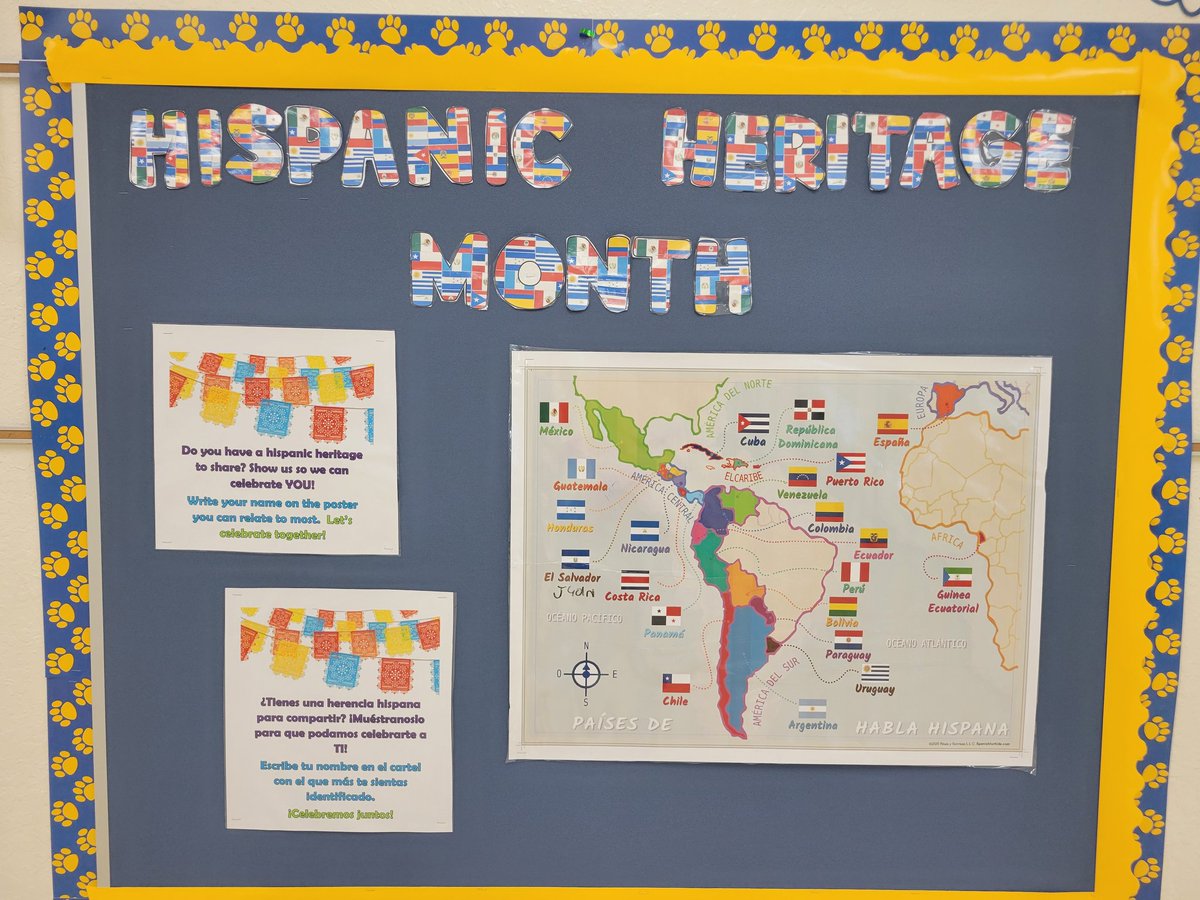 HISPANIC HERITAGE
MONTH
Do you have a hispanic heritage
to share? Show us so we can
celebrate YOU!
Write your name on the poster
you can relate to most. Let's
celebrate together!
¿Tienes una herencia hispana
para compartir? ¡Muéstranoslo
para que podamos celebrarte a
TI!
Escribe tu nombre en el cartel
con el que más te sientas
identificado.
¡Celebremos juntos!
AMÉRICA DEL NORTE
EUROPA
México
Cuba
República
Dominicana
España
EL CARIBE
Puerto Rico
Guatemala
AMÉRICA CENTRAL
Venezuela
Honduras
Colombia
Nicaragua
Ecuador
AFRICA
El Salvador
Costa Rica
Perú
Guinea
Ecuatorial
OCEANO PACIFICO
Panamá
Bolivia
OCEANO ATLÁNTICO
Paraguay
N
O
E
S
Uruguay
Chile
AMÉRICA DEL SUR
Argentina
PAÍSES DE
HABLA HISPANA